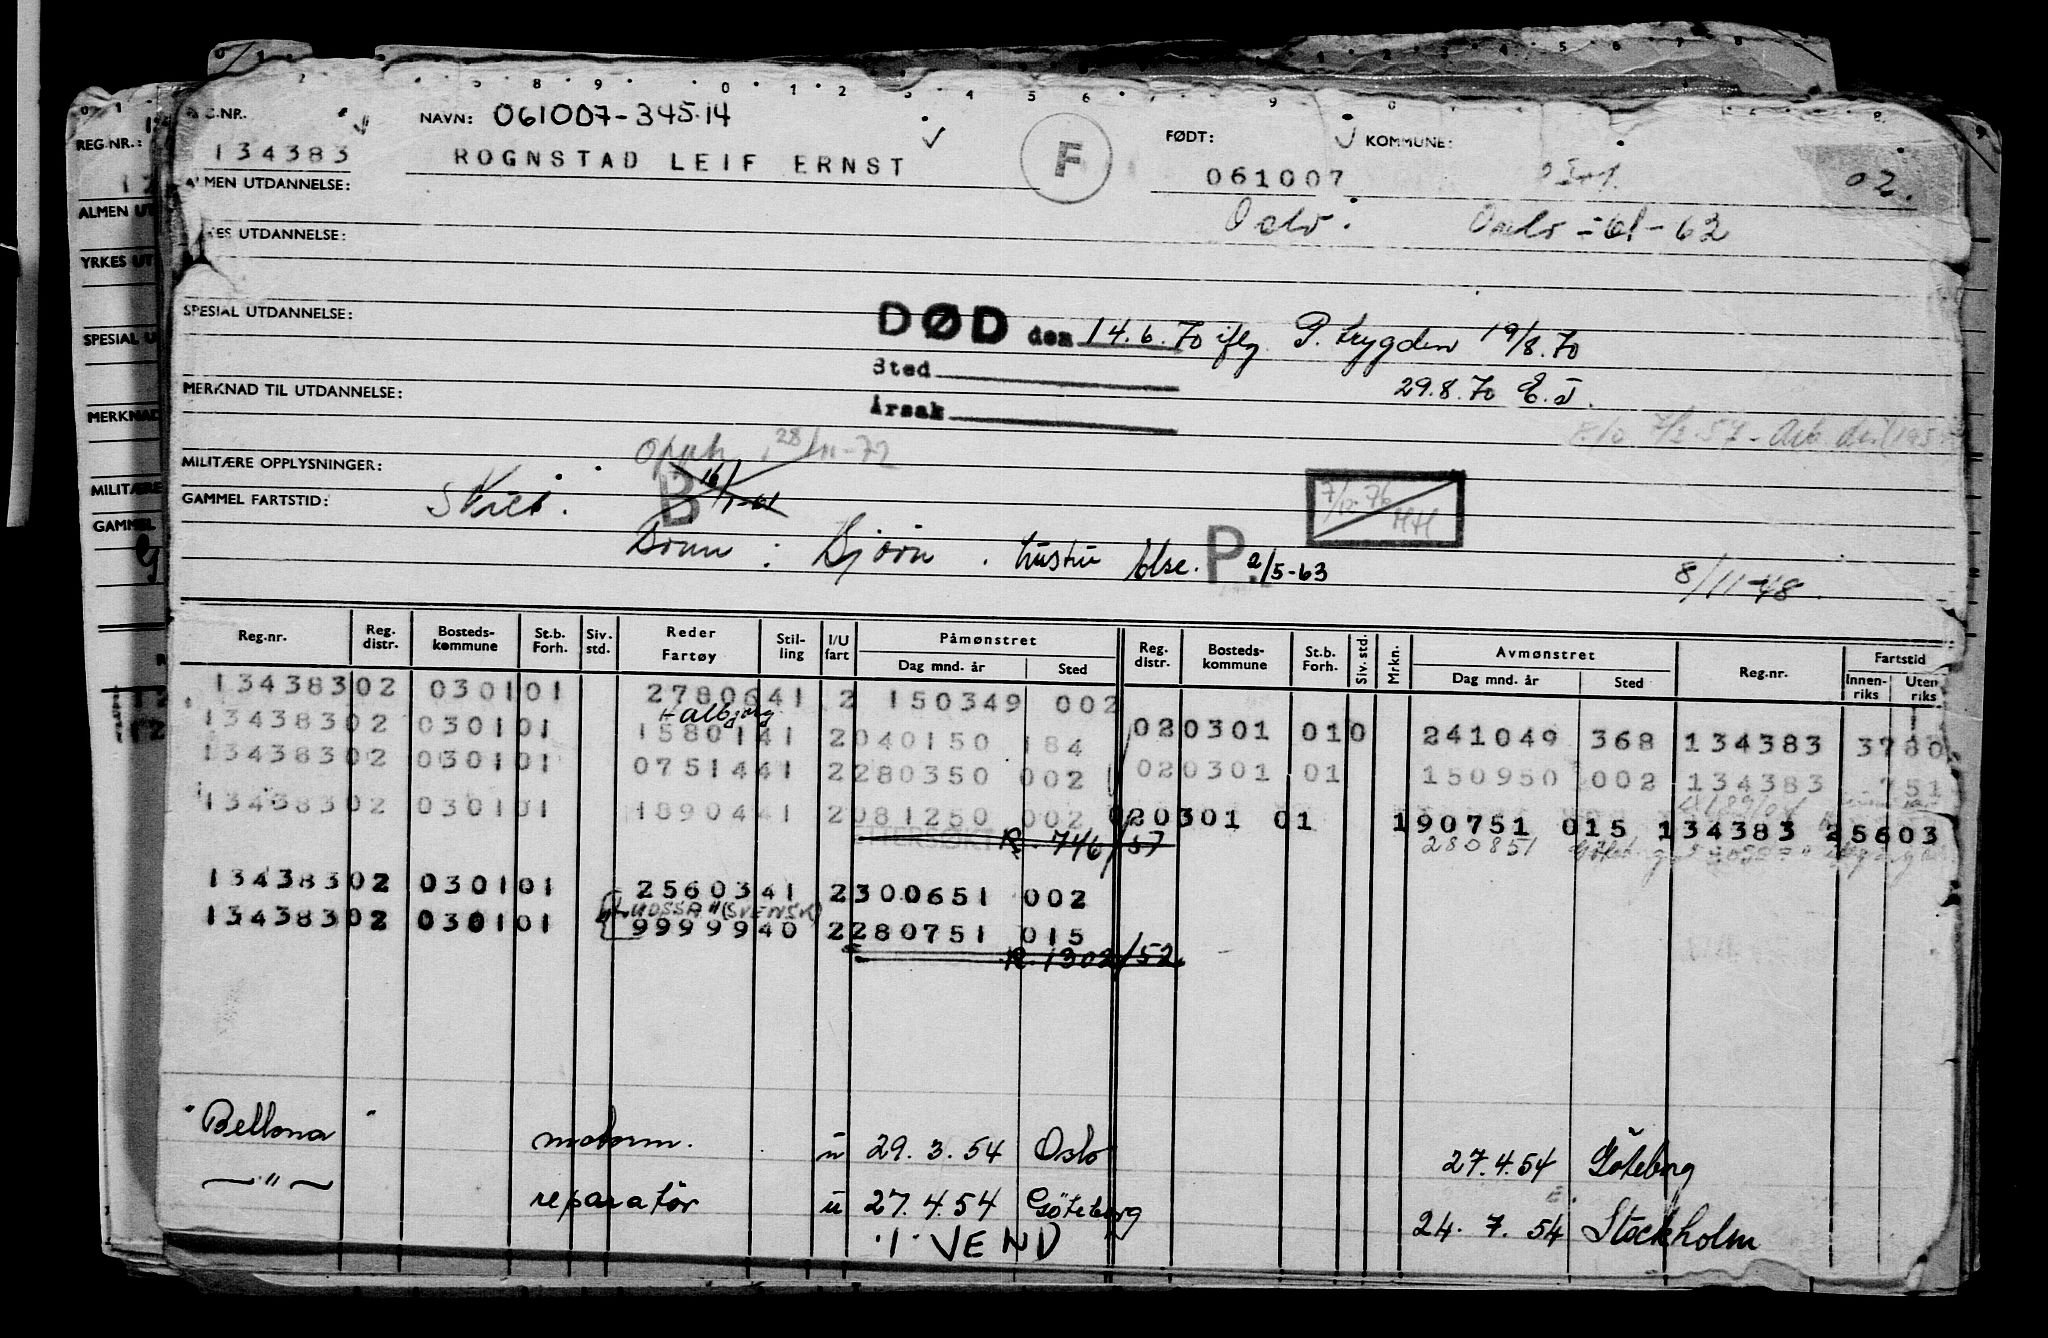 REG.NR.
NAVN: 061007-345.14
FØDT:
KOMMUNE:
134383
ROGNSTAD LEIF ERNST
F
061007
02.
ALMEN UTDANNELSE:
Oslo.
Oslo -61-62
YRKES UTDANNELSE:
SPESIAL UTDANNELSE:
DØD den 14.6.70 iflg P. trygden 19/8.70
Sted
29.8.70 E.J.
MERKNAD TIL UTDANNELSE:
Årsak
Opph. 28/11-72
MILITÆRE OPPLYSNINGER:
B
7/12-76
HH
GAMMEL FARTSTID:
P. 2/5-63
Bjørn . hustru Else.
8/11-48.
Reg.nr. Reg. distr. Bosteds-kommune St.b. Forh. Siv. std. Reder Fartøy Stil-ling I/U fart Påmønstret Dag mnd. år Sted Reg. distr. Bosteds-kommune St.b. Forh. Siv. std. Mrkn. Avmønstret Dag mnd. år Sted Reg.nr. Fartstid Innen-riks Uten riks
134383 02 0301 01 27806 41 2 150349 002
Halbjørg
134383 02 0301 01 15801 41 2 040150 184 02 0301 01 0 241049 368 134383 3780
134383 02 0301 01 07514 41 2 280350 002 02 0301 01 150950 002 134383 751
134383 02 0301 01 18904 41 2 081250 002 02 0301 01 190751 015 134383 25603
R. 746/57
280851
134383 02 0301 01 25603 41 2 300651 002
"MOSSA" (SVENSK)
134383 02 0301 01 99999 40 2 280751 015
R. 1302/52
"Bellona" motorm. u 29.3.54 Oslo 27.4.54 Göteborg
—"— reparatør u 27.4.54 Göteborg 24.7.54 Stockholm
.1. VEND